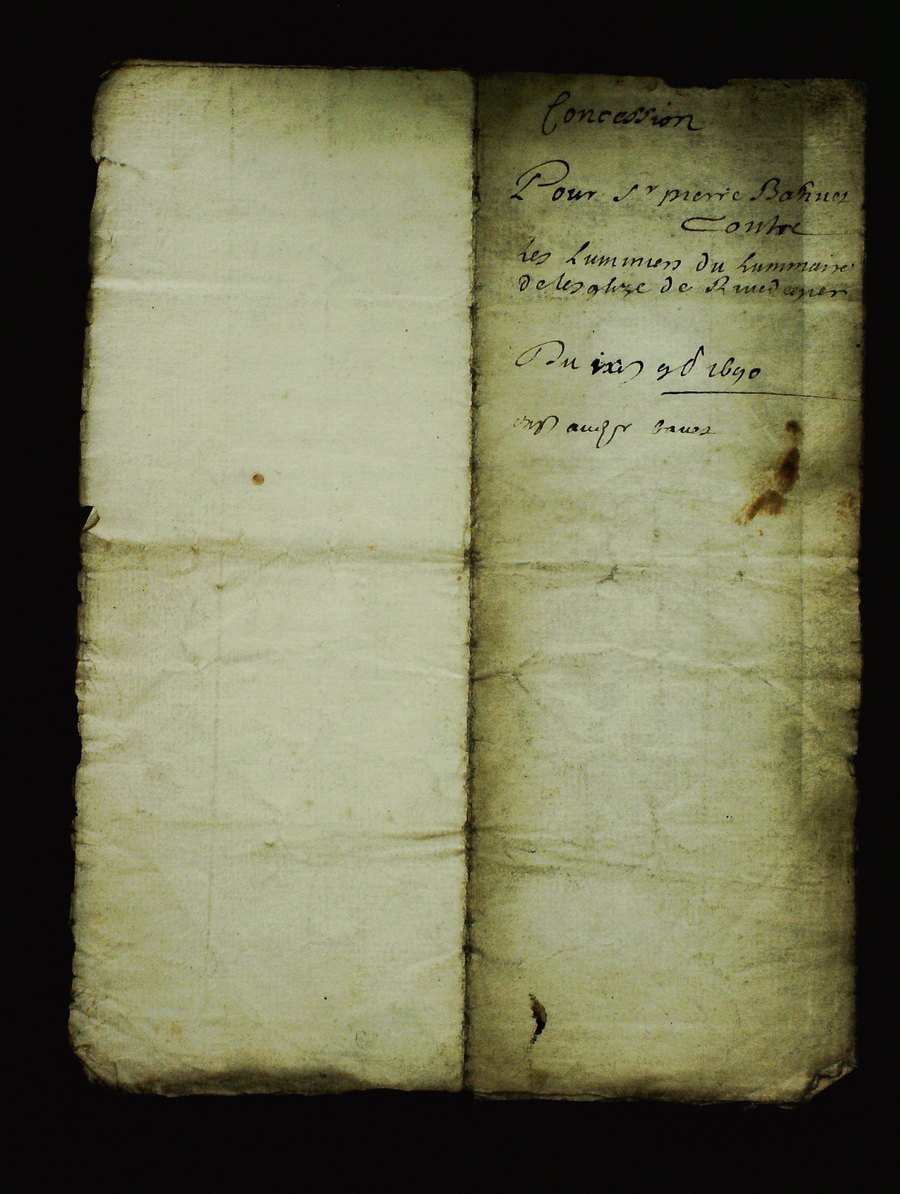 Concession
Pour Sr pierre Bahuet
Contre
Les Luminiers du Luminaire
de lesglize de Rivedegier
Du ixe 9b 1690